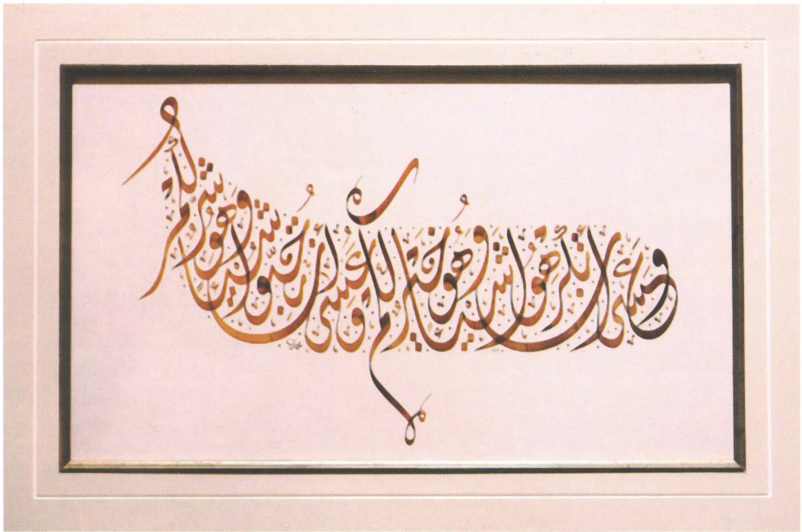 وَعَسَى أَن تَكْرَهُوا شَيْئًا وَهُوَ خَيْرٌ لَّكُمْ وَعَسَى أَن تُحِبُّوا شَيْئًا وَهُوَ شَرٌّ لَّكُمْ